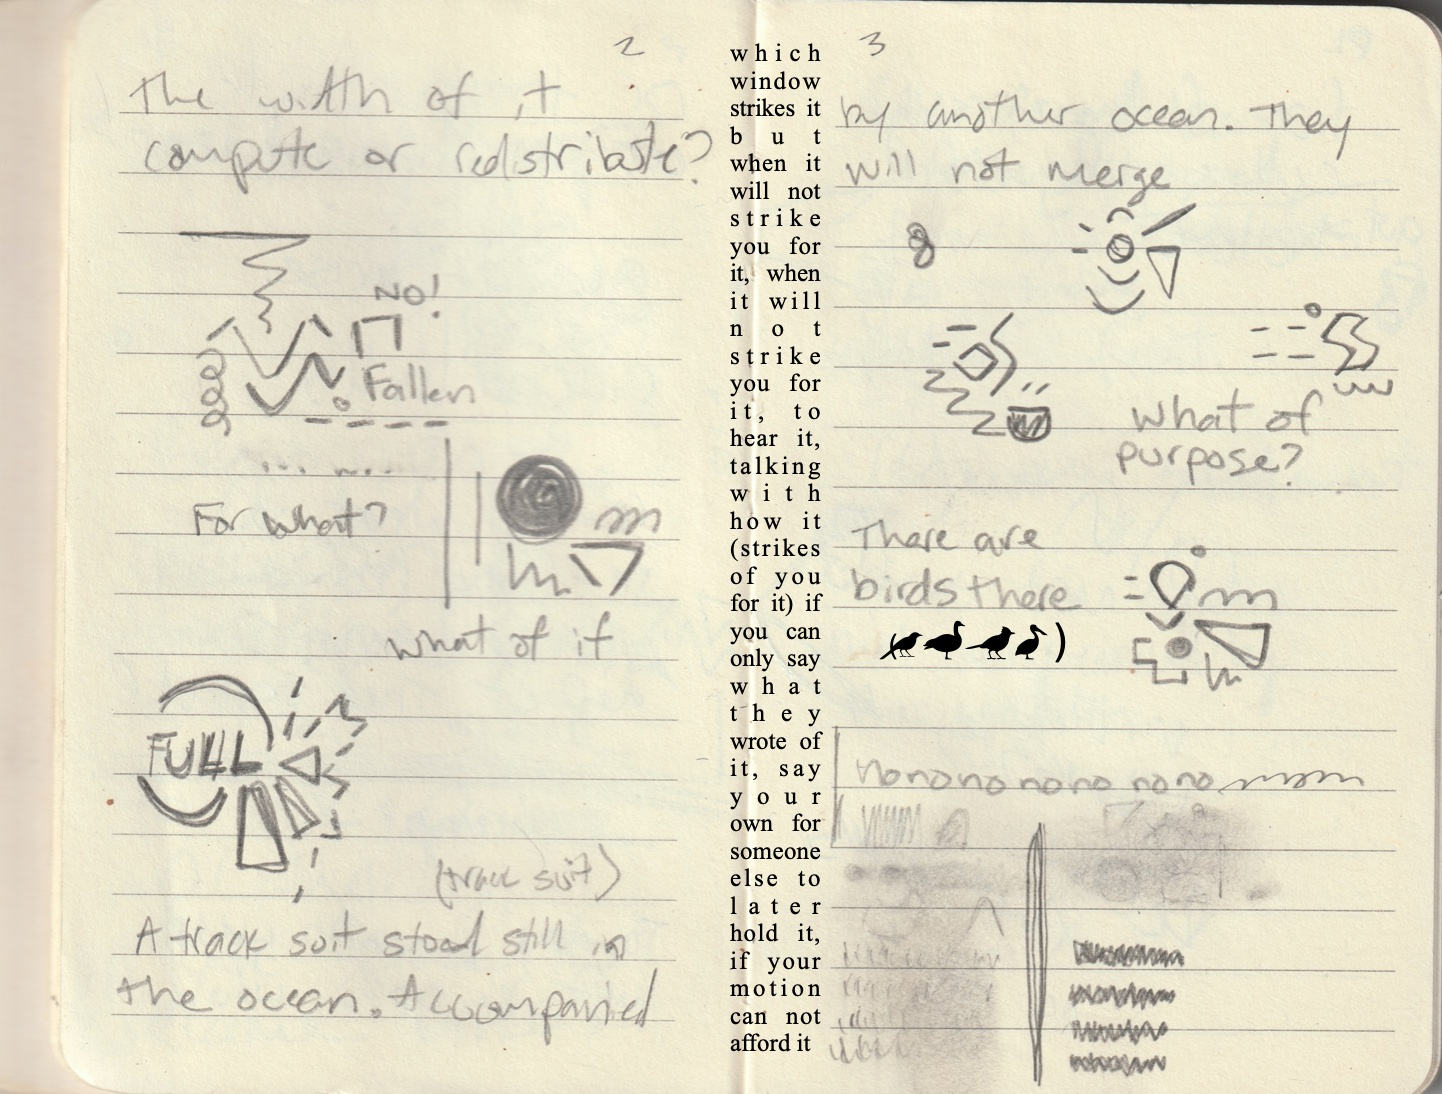 2
The width of it
compute or redistribute?
NO!
Fallen
For what?
what of it
FULL
(track suit)
A track suit stood still in
the ocean. Accompanied
which
window
strikes it
but
when it
will not
strike
you for
it, when
it will
not
strike
you for
it, to
hear it,
talking
with
how it
(strikes
of you
for it) if
you can
only say
what
they
wrote of
it, say
your
own for
someone
else to
later
hold it,
if your
motion
can not
afford it
3
by another ocean. They
will not merge
8
what of
purpose?
There are
birds there
)
nonono nono nono